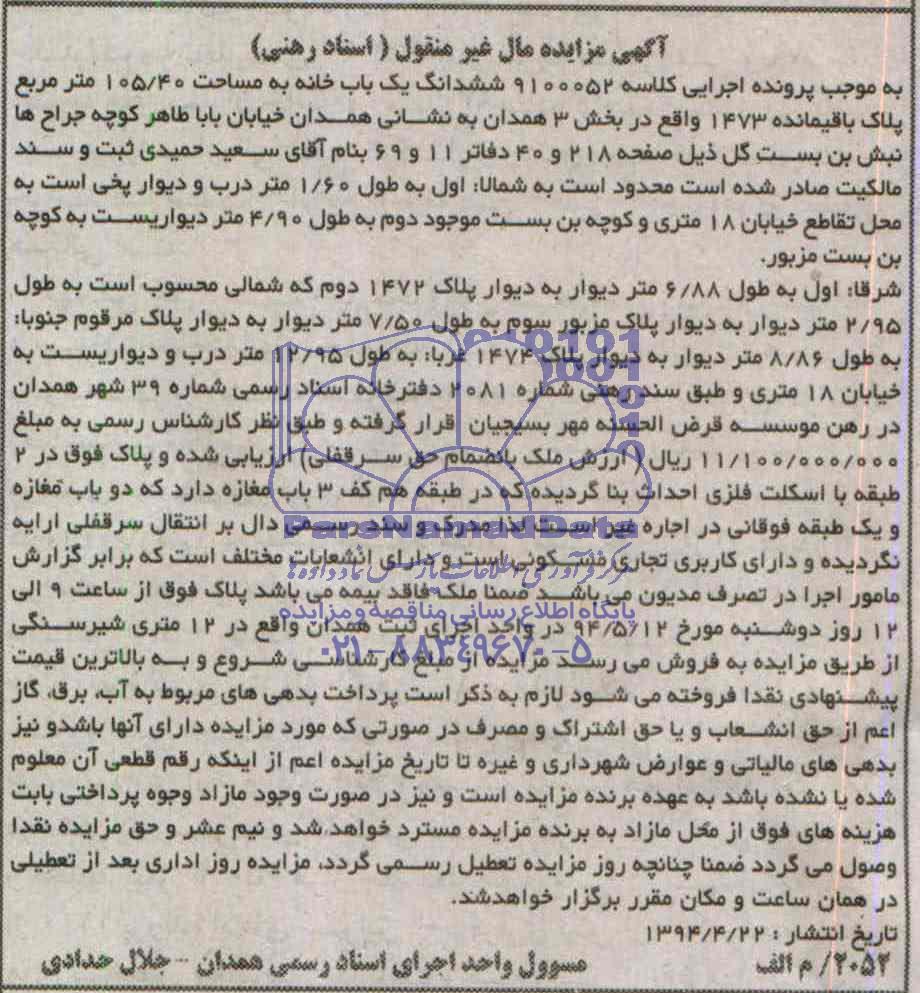 آگهی مزایده مال غیر منقول ( اسناد رهنی)
به موجب پرونده اجرایی کلاسه ۹۱۰۰۰۵۲ ششدانگ یک باب خانه به مساحت ۱۰۵/۴۰ متر مربع
پلاک باقیمانده ۱۴۷۳ واقع در بخش ۳ همدان به نشانی همدان خیابان بابا طاهر کوچه جراح ها
نبش بن بست گل ذیل صفحه ۲۱۸ و ۴۰ دفاتر ۱۱ و ۶۹ بنام آقای سعید حمیدی ثبت و سند
مالکیت صادر شده است محدود است به شمالا: اول به طول ۱/۶۰ متر درب و دیوار پخی است به
محل تقاطع خیابان ۱۸ متری و کوچه بن بست موجود دوم به طول ۴/۹۰ متر دیواریست به کوچه
بن بست مزبور.
شرقا: اول به طول ۶/۸۸ متر دیوار به دیوار پلاک ۱۴۷۲ دوم که شمالی محسوب است به طول
۲/۹۵ متر دیوار به دیوار پلاک مزبور سوم به طول ۷/۵۰ متر دیوار به دیوار پلاک مرقوم جنوبا:
به طول ۸/۸۶ متر دیوار به دیوار پلاک ۱۴۷۴ غربا: به طول ۱۲/۹۵ متر درب و دیواریست به
خیابان ۱۸ متری و طبق سند رهنی شماره ۲۰۸۱ دفترخانه اسناد رسمی شماره ۳۹ شهر همدان
در رهن موسسه قرض الحسنه مهر بسیجیان قرار گرفته و طبق نظر کارشناس رسمی به مبلغ
۱۱/۱۰۰/۰۰۰/۰۰۰ ریال ( ارزش ملک بانضمام حق سرقفلی) ارزیابی شده و پلاک فوق در ۲
طبقه با اسکلت فلزی احداث بنا گردیده که در طبقه هم کف ۳ باب مغازه دارد که دو باب مغازه
و یک طبقه فوقانی در اجاره غیر است لذا مدرک و سند رسمی دال بر انتقال سرقفلی ارایه
نگردیده و دارای کاربری تجاری مسکونی است و دارای انشعابات مختلف است که برابر گزارش
مامور اجرا در تصرف مدیون می باشد ضمنا ملک فاقد بیمه می باشد پلاک فوق از ساعت ۹ الی
۱۲ روز دوشنبه مورخ ۹۴/۵/۱۲ در واحد اجرای ثبت همدان واقع در ۱۲ متری شیرسنگی
از طریق مزایده به فروش می رسد مزایده از مبلغ کارشناسی شروع و به بالاترین قیمت
پیشنهادی نقدا فروخته می شود لازم به ذکر است پرداخت بدهی های مربوط به آب، برق، گاز
اعم از حق انشعاب و یا حق اشتراک و مصرف در صورتی که مورد مزایده دارای آنها باشدو نیز
بدهی های مالیاتی و عوارض شهرداری و غیره تا تاریخ مزایده اعم از اینکه رقم قطعی آن معلوم
شده یا نشده باشد به عهده برنده مزایده است و نیز در صورت وجود مازاد وجوه پرداختی بابت
هزینه های فوق از محل مازاد به برنده مزایده مسترد خواهد شد و نیم عشر و حق مزایده نقدا
وصول می گردد ضمنا چنانچه روز مزایده تعطیل رسمی گردد، مزایده روز اداری بعد از تعطیلی
در همان ساعت و مکان مقرر برگزار خواهدشد.
تاریخ انتشار : ۱۳۹۴/۴/۲۲
۲۰۵۲/ م الف
مسوول واحد اجرای اسناد رسمی همدان - جلال حدادی
ParsNamadData
مرکز فرآوری اطلاعات پارس نماد داده ها
پایگاه اطلاع رسانی مناقصه و مزایده
۰۲۱-۸۸۳۴۹۶۷۰-۵